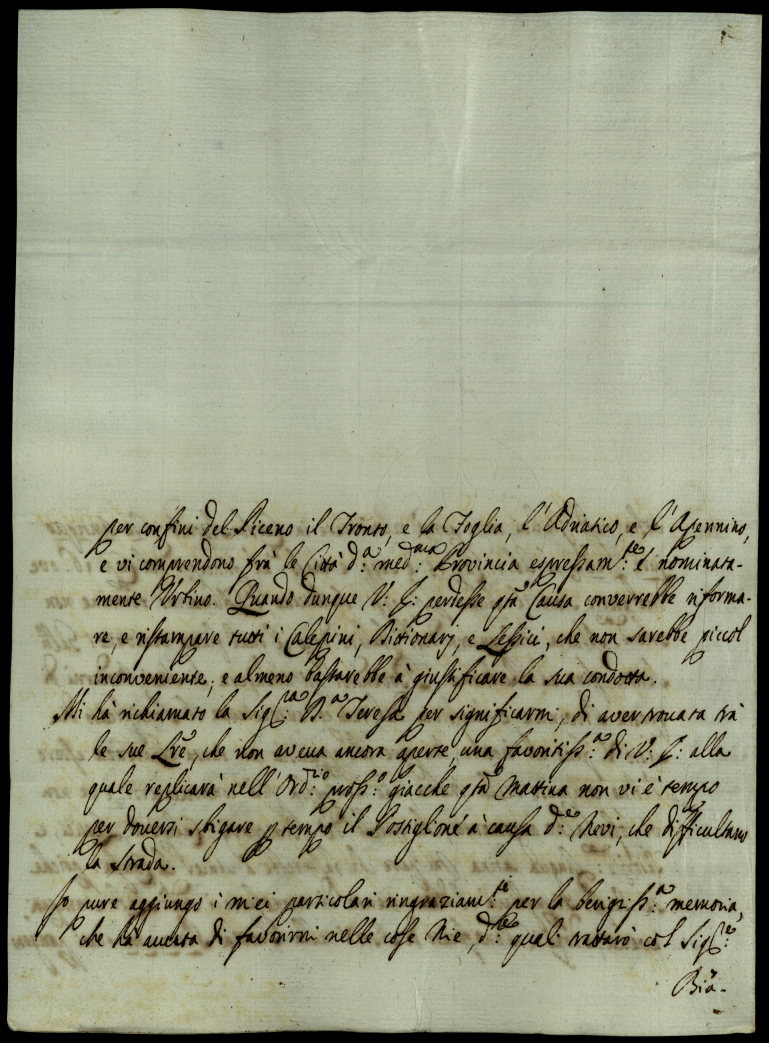 per confini del Piceno il Tronto, e la Foglia, l'Adriatico, e l'Apennino,
e vi comprendono frà le Città d.ª med.ma Provincia espressam.te e nominata-
mente Urbino. Quando dunque V: S: perdesse qsta Causa converrebbe riforma-
re, e ristampare tutti i Calepini, Dictionarj, e Lessici, che non sarebbe piccol
inconveniente, e almeno bastarebbe à giustificare la sua condotta.
Mi hà richiamato la Sig.ra D.ª Teresa per significarmi, di aver trovata trà
le sue Lre, che non aveva ancora aperte, una favoritiss.ª di V: S: alla
quale replicarà nell'Ord.rio pross.º giacche qsta Mattina non vi è tempo
per doversi sbrigare p tempo il Postiglione à causa d.e Nevi, che difficultano
la strada.
Io pure aggiungo i miei particolari ringraziam.ti per la benigniss.ª memoria,
che hà avuta di favorirmi nelle cose Mie, d.e quali trattarò col Sig.e
Bia-